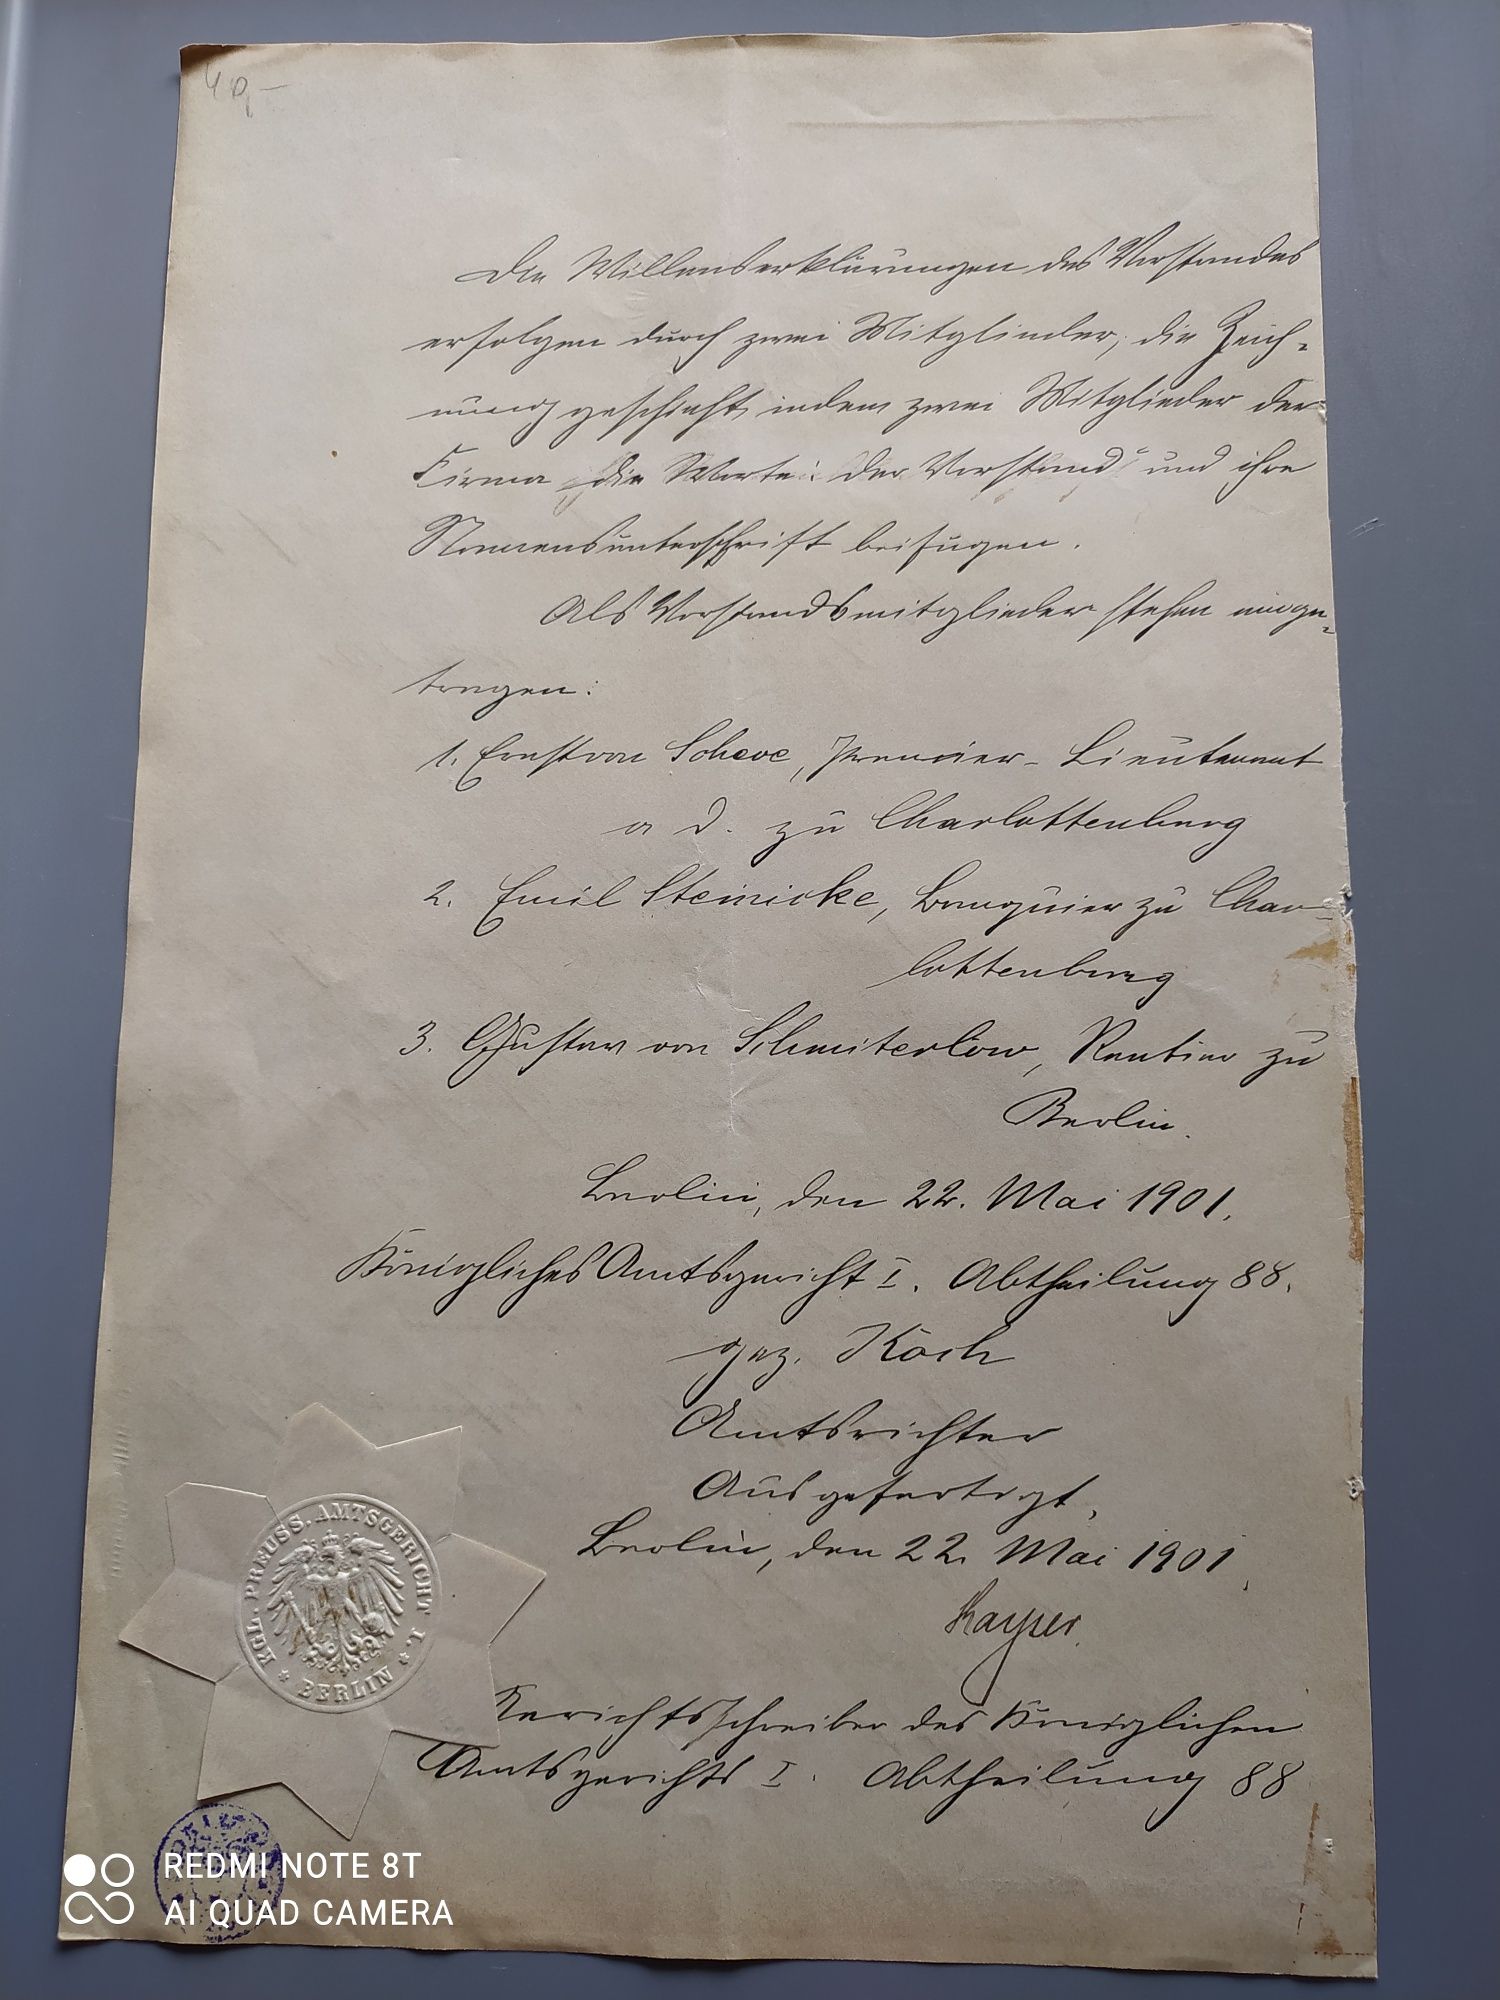 Die Willenserklärungen des Vorstandes
erfolgen durch zwei Mitglieder, die Zeich-
nung geschieht, indem zwei Mitglieder der
Firma die Worte: „Der Vorstand“ und ihre
Namensunterschrift beifügen.
Als Vorstandsmitglieder stehen einge-
tragen:
1. Ernst von Scheve, Premier-Lieutenant
a D. zu Charlottenburg
2. Emil Steinicke, Banquier zu Char-
lottenburg
3. Gustav von Schmiterlöw, Rentier zu
Berlin.
Berlin, den 22. Mai 1901.
Königliches Amtsgericht I. Abtheilung 88.
gez. Koch
Amtsrichter
Ausgefertigt,
Berlin, den 22. Mai 1901.
Kayser
Gerichtsschreiber des Königlichen
Amtsgerichts I. Abtheilung 88
KGL. PREUSS. AMTSGERICHT I.
* BERLIN *
REDMI NOTE 8T
AI QUAD CAMERA